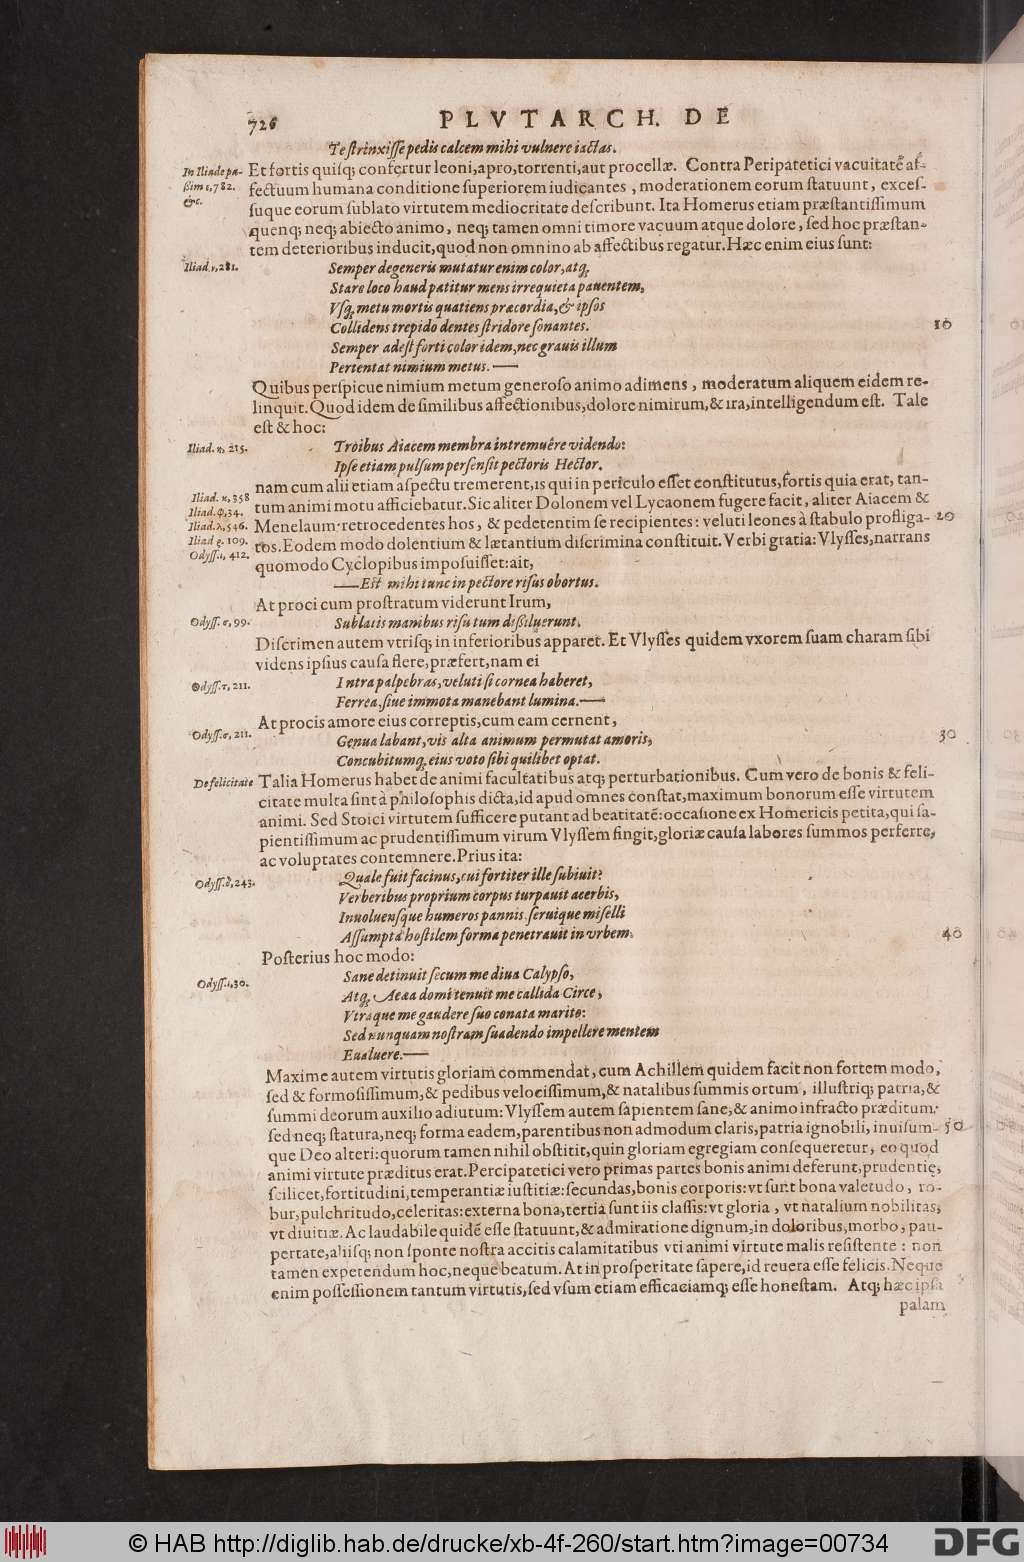 726
PLVTARCH. DE
Te strinxisse pedis calcem mihi vulnere iactas.
In Iliade pas-
sim ε, 782.
&c.
Et fortis quisq; confertur leoni, apro, torrenti, aut procellæ. Contra Peripatetici vacuitatē af-
fectuum humana conditione superiorem iudicantes, moderationem eorum statuunt, exces-
suque eorum sublato virtutem mediocritate describunt. Ita Homerus etiam præstantissimum
quenq; neq; abiecto animo, neq; tamen omni timore vacuum atque dolore, sed hoc præstan-
tem deterioribus inducit, quod non omnino ab affectibus regatur. Hæc enim eius sunt:
Iliad. ν, 281.
Semper degeneris mutatur enim color, atq;
Stare loco haud patitur mens irrequieta pauentem,
Vsq; metu mortis quatiens præcordia, & ipsos
Collidens trepido dentes stridore sonantes.
10
Semper adest forti color idem, nec grauis illum
Pertentat nimium metus. —
Quibus perspicue nimium metum generoso animo adimens, moderatum aliquem eidem re-
linquit. Quod idem de similibus affectionibus, dolore nimirum, & ira, intelligendum est. Tale
est & hoc:
Iliad. η, 215.
Troibus Aiacem membra intremuêre videndo:
Ipse etiam pulsum persensit pectoris Hector.
nam cum alii etiam aspectu tremerent, is qui in periculo esset constitutus, fortis quia erat, tan-
Iliad. κ, 358
tum animi motu afficiebatur. Sic aliter Dolonem vel Lycaonem fugere facit, aliter Aiacem &
Iliad. φ, 34.
Iliad. λ, 546.
Menelaum retrocedentes hos, & pedetentim se recipientes: veluti leones à stabulo profliga-
20
Iliad ρ. 109.
tos. Eodem modo dolentium & lætantium discrimina constituit. Verbi gratia: Vlysses, narrans
Odyss. ι, 412.
quomodo Cyclopibus imposuisset: ait,
— Est mihi tunc in pectore risus obortus.
At proci cum prostratum viderunt Irum,
Odyss. σ, 99.
Sublatis manibus risu tum dissiluerunt.
Discrimen autem vtrisq; in inferioribus apparet. Et Vlysses quidem vxorem suam charam sibi
videns ipsius causa flere, præfert, nam ei
Odyss. τ, 211.
Intra palpebras, veluti si cornea haberet,
Ferrea, siue immota manebant lumina. —
At procis amore eius correptis, cum eam cernent,
Odyss. σ, 211.
Genua labant, vis alta animum permutat amoris,
30
Concubitumq; eius voto sibi quilibet optat.
De felicitate
Talia Homerus habet de animi facultatibus atq; perturbationibus. Cum vero de bonis & feli-
citate multa sint à philosophis dicta, id apud omnes constat, maximum bonorum esse virtutem
animi. Sed Stoici virtutem sufficere putant ad beatitatē: occasione ex Homericis petita, qui sa-
pientissimum ac prudentissimum virum Vlyssem fingit, gloriæ causa labores summos perferre,
ac voluptates contemnere. Prius ita:
Odyss. δ, 243.
Quale fuit facinus, cui fortiter ille subiuit?
Verberibus proprium corpus turpauit acerbis,
Inuoluensque humeros pannis, seruique miselli
Assumpta hostilem forma penetrauit in vrbem.
40
Posterius hoc modo:
Odyss. ι, 30.
Sane detinuit secum me diua Calypso,
Atq; Aeæa domi tenuit me callida Circe,
Vtraque me gaudere suo conata marito:
Sed nunquam nostram suadendo impellere mentem
Eualuere. —
Maxime autem virtutis gloriam commendat, cum Achillem quidem facit non fortem modo,
sed & formosissimum, & pedibus velocissimum, & natalibus summis ortum, illustriq; patria, &
summi deorum auxilio adiutum: Vlyssem autem sapientem sane, & animo infracto præditum:
sed neq; statura, neq; forma eadem, parentibus non admodum claris, patria ignobili, inuisum-
50
que Deo alteri: quorum tamen nihil obstitit, quin gloriam egregiam consequeretur, eo quod
animi virtute præditus erat. Percipatetici vero primas partes bonis animi deferunt, prudentię,
scilicet, fortitudini, temperantiæ iustitiæ: secundas, bonis corporis: vt sunt bona valetudo, ro-
bur, pulchritudo, celeritas: externa bona, tertia sunt iis classis: vt gloria, vt natalium nobilitas,
vt diuitiæ. Ac laudabile quidē esse statuunt, & admiratione dignum, in doloribus, morbo, pau-
pertate, aliisq; non sponte nostra accitis calamitatibus vti animi virtute malis resistente: non
tamen expetendum hoc, neque beatum. At in prosperitate sapere, id reuera esse felicis. Neque
enim possessionem tantum virtutis, sed vsum etiam efficaciamq; esse honestam. Atq; hæc ipsa
palam
© HAB http://diglib.hab.de/drucke/xb-4f-260/start.htm?image=00734
DFG